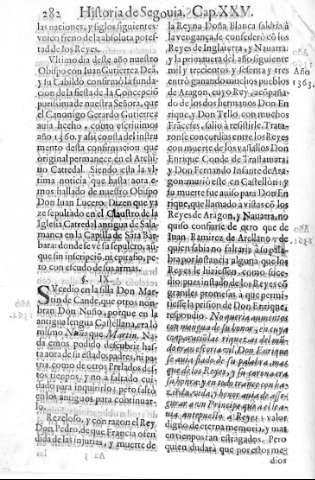 282 Historia de Segouia. Cap. XXV.
las naciones, y siglos siguientes
voicõ freno de la absoluta potes-
tad de los Reyes.
Vltimo dia deste año nuestro
Obispo con Iuan Gutierrez Deã,
y su Cabildo confirmò la funda-
cion de la fiesta de la Concepciõ
purissima de nuestra Señora, que
el Canonigo Gerardo Gutierrez
auia hecho, como escriuimos
año 1360, y assi consta del instru-
mento desta confirmacion que
original permanece en el Archi-
uo Catredal. Siendo esta la vl-
tima noticia que hasta aora e-
mos hallado de nuestro Obispo
Don Iuan Lucero. Dizen que ya-
ze sepultado en el Claustro de la
Iglesia Catredal antigua de Sala-
manca en la Capilla de Sãta Bar-
bara: donde se vè su sepulcro, aũ-
que sin inscripciõ, ni epitafio, pe-
ro con escudo de sus armas.
§. IX.
Sucedio en la silla Don Mar-
tin de Cande, que otros nom-
bran Don Nuño, porque en la
antigua lengua Castellana, era lo
mismo Nuño que Martin. Na-
da emos podido descubrir has-
ta aora de su estado, padres, ni pa-
tria, como de otros Prelados des-
tos tiempos, y no a faltado cui-
dado para inquirirlo; pero faltò
en los antiguos para continuar-
lo.
Rezeloso, y con razon el Rey
Don Pedro, de que Francia ofen-
dida de las injurias, y muerte de
la Reyna Doña Blanca saldria à
la vengança, se confederò cõ los
Reyes de Inglaterra, y Nauarra,
y la primauera del año siguiente
mil y trecientos y sesenta y tres
entrò ganando muchos pueblos
de Aragon, cuyo Rey,
do de los dos hermanos Don En-
rique, y Don Tello, con muchos
Frãceses, salio à resistirle. Trata-
ronse conciertos entre los Reyes
con muerte de los vassallos Don
Enrique Conde de Trastamara,
y Don Fernando Infante de Ara-
gon: murio este en Castellon: y
su muerte fue auiso para Dõ En-
rique, que llamado a vistas cõ los
Reyes de Aragon, y Nauarra, no
quiso confiarse de otro que de
Iuan Ramirez de Arellano y de
quien sabia no faltaria
bra por instancia alguna que los
Reyes le hiziessen. como suce-
dio pues instado de los Reyes cõ
grandes promesas a que permi-
tiesse la prision de Don Enrique,
respondio. No quiera aumentos
con mengua de su honra, en cuya
comparaciõ
de su palabra, mas
que de los Reyes, y
su honra, y en
cada cuita, y
dignas de eterna memoria, y mas
en tiempos tan estragados. Pero
quien dudara que por estos me-
dios
Año
1363.